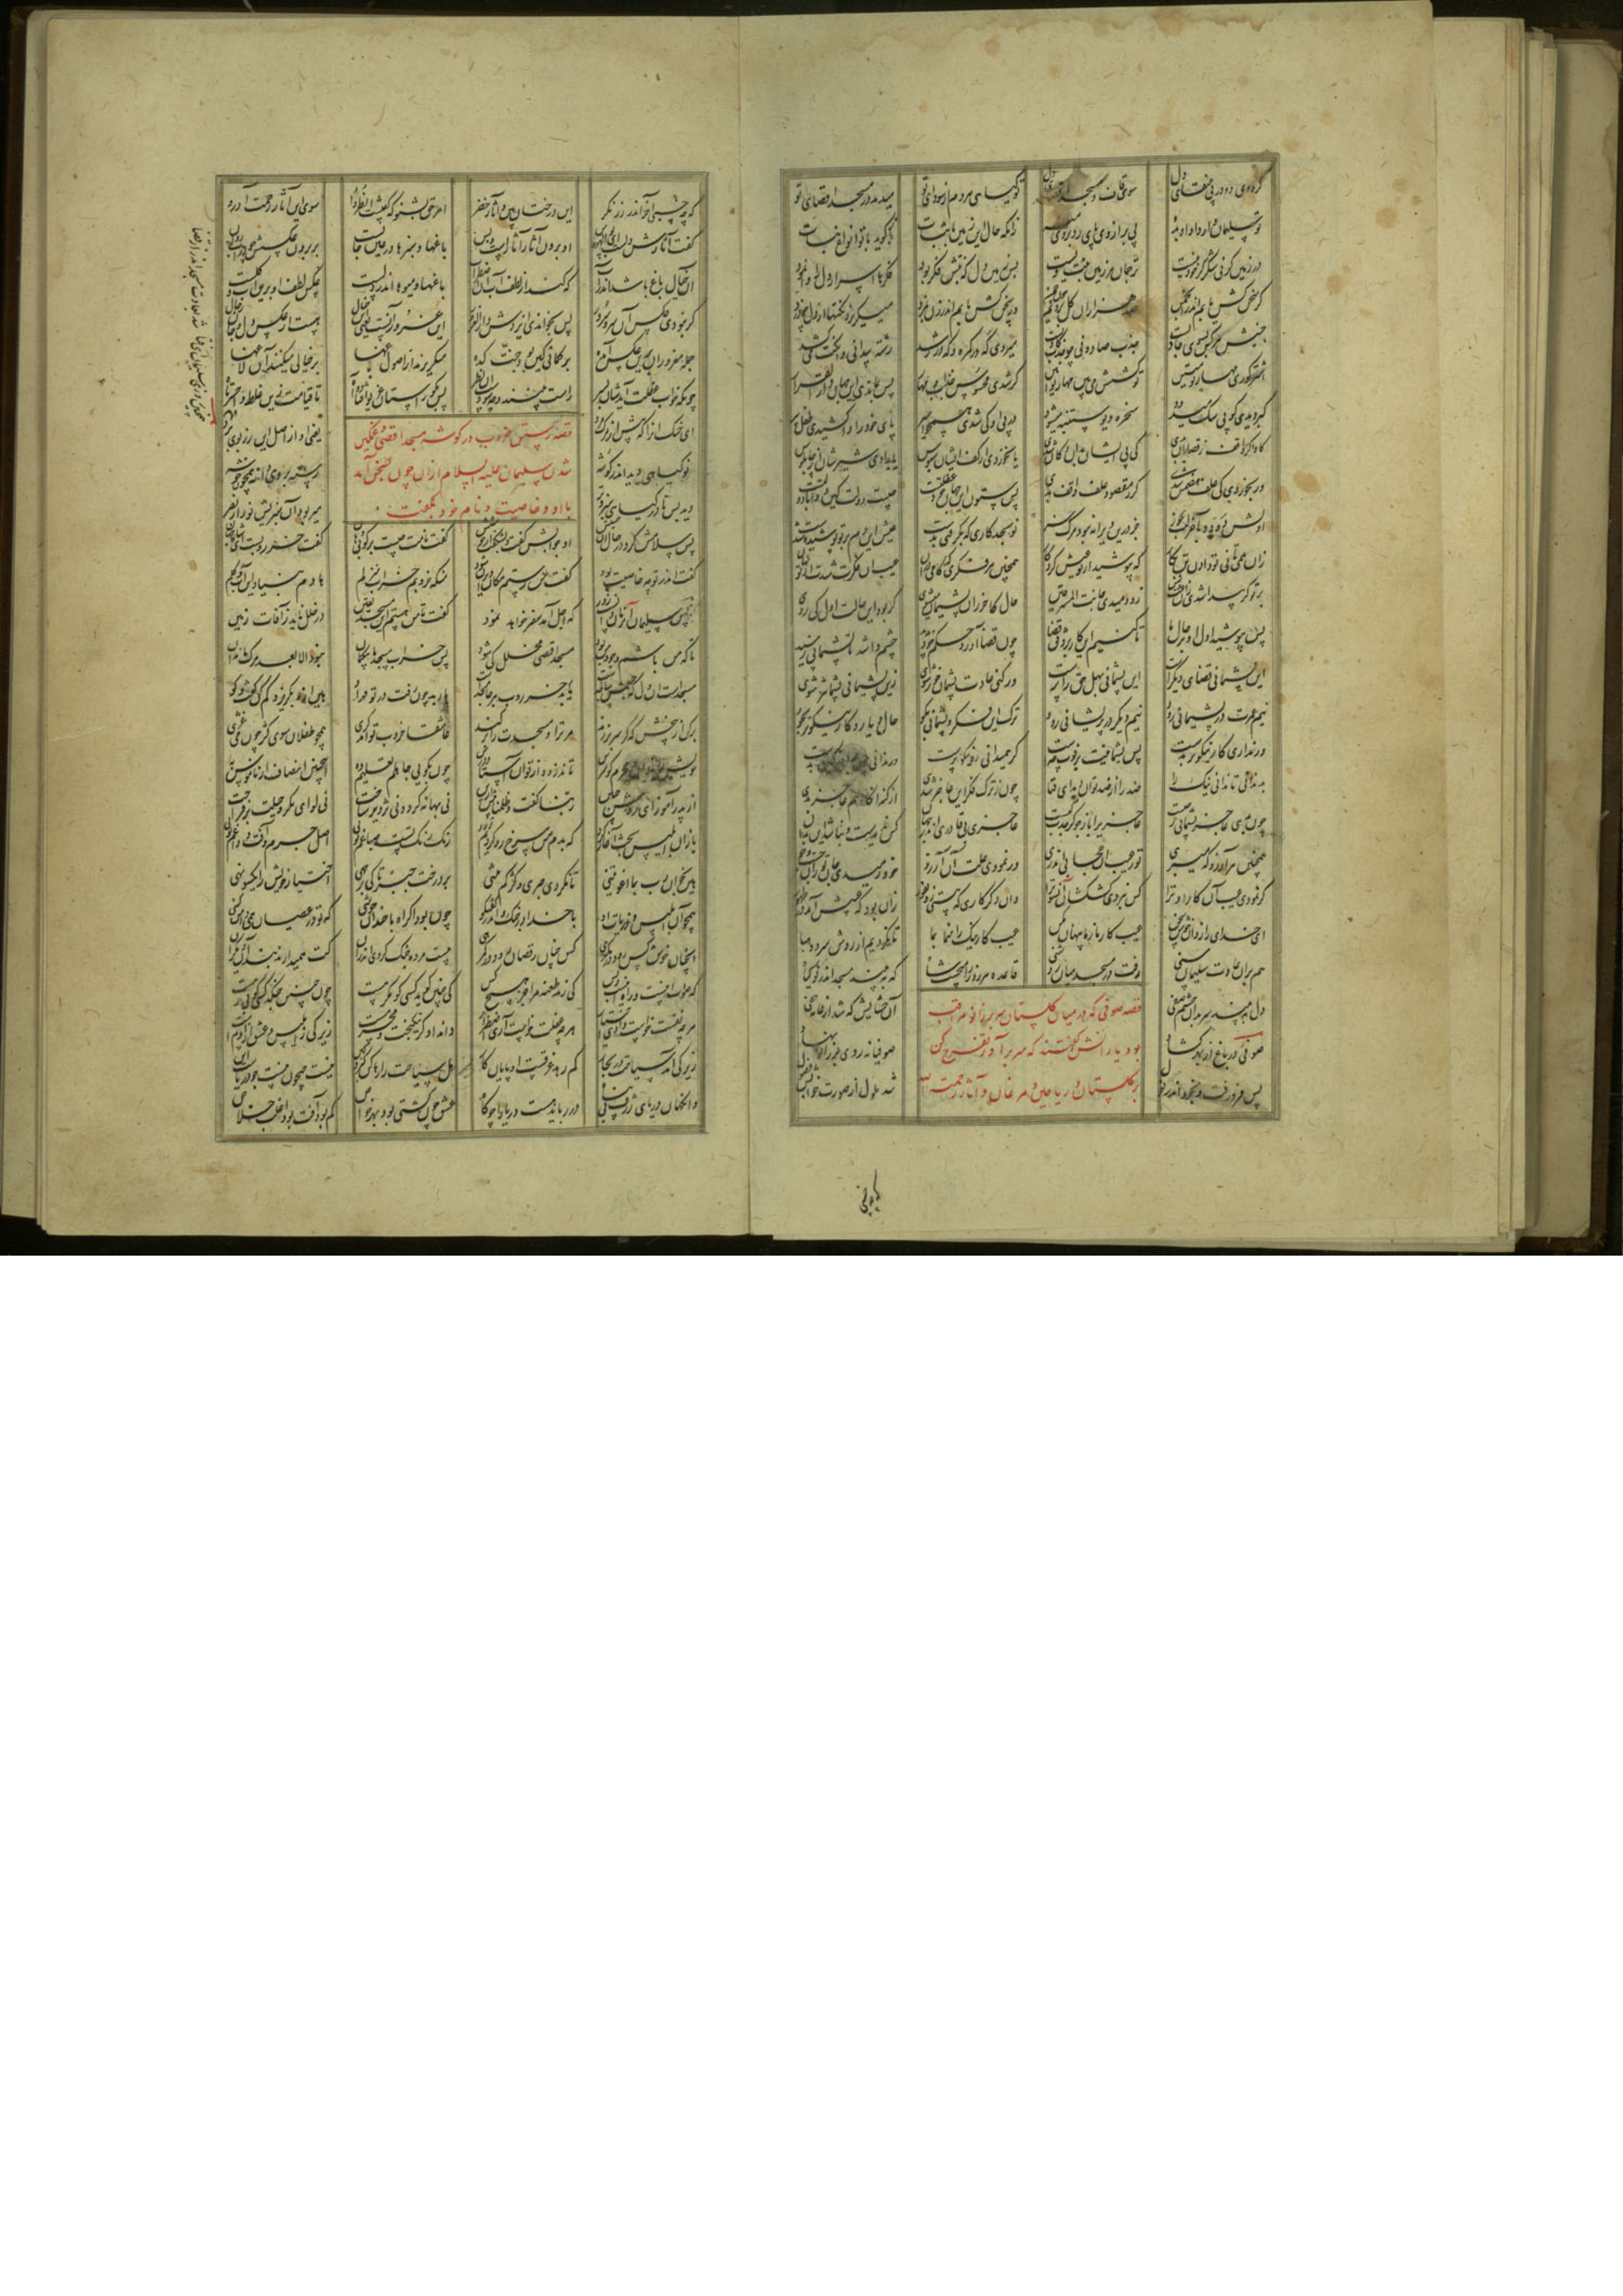 گر روی رو در پی عنقای دل سوی قاف و مسجد اقصای دل نو گیاهی هر دم از سودای تو میدمد در مسجد اقصای تو
تو سلیمان وار داد او بده پی بر از وی پای رد بر وی منه زانکه حال این زمین با ثبات باز گوید با تو انواع نبات
در زمین گر نی شکر گر خود نیست ترجمان هر زمین نبت ویست پس زمین دل که نبتش فکر بود فکرها اسرار دل را وا نمود
گر سخن کش یابم اندر انجمن صد هزاران گل برویم چون چمن ور سخن کش یابم میگریزد نکتها از دل چو دزد
جنبش هر کس بسوی جاذبست جذب صادق نی چو جذب کاذبست میروی گه گمره و گه در رشد رشته پیدا نی و آنکت میکشد
اشتر کوری مهار تو متین تو کشش می بین مهارت را مبین گر شدی محسوس جذاب و مهار پس نماندی این جهان
گبر دیدی کو پی سگ میرود سخره دیو ستنبه میشود در پی او کی شدی پای خود را وا کشیدی
گاو گر واقف ز قصابان بدی کی پی ایشان بدان دکان شدی یا بخوردی از کف ایشان سبوس یا بدادی شیرشان از چاپلوس
ور بخوردی کی علف هضمش شدی گر ز مقصود علف واقف بدی پس ستون این جهان خود غفلتست چیست دولت کین دوادو با لتست
اولش دو دو بآخر لت بخور جز درین ویرانه نبود مرگ خر تو بجد کاری که بگرفتی بدست عیبش این دم بر تو پوشیده شدست
زان همی تانی تو دادن تن بکار که بپوشید از تو عیبش کردگار همچنین هر فکر که گرمی در آن عیب آن فکرت شدست از تو نهان
بر تو گر پیدا شدی زان عیب و شین زو رمیدی جانت بعد المشرقین حال کاخر زان پشیمان میشوی گر بود این حالت اول کی دوی
پس بپوشید اول او بر جان ما تا کنیم این کار بر وفق قضا چون قضا آورد حکم خود پدید چشم وا شد تا پشیمانی رسید
این پشیمانی قضای دیگرست این پشیمانی بهل حق را پرست ور کنی عادت پشیمان خور شوی زین پشیمانی پشیمانتر شوی
نیم عمرت در پشیمانی رود نیم دیگر در پریشانی رود ترک این فکر و پشیمانی بگو حال و یار و کار نیکوتر بجو
ور نداری کار نیکوتر بدست پس پشیمانیت بر فوت چه است گر همی دانی ره نیکو پرست ور ندانی
بد ندانی تا ندانی نیک را ضد را از ضد توان دید ای فتا چون ز ترک فکر این عاجز شدی از گنه آنگاه هم عاجز بدی
چون بدی عاجز پشیمانی ز چیست عاجزی را باز جو کز جذب کیست عاجزی بی قادری اندر جهان کس ندیدست و نباشد این بدان
همچنین هر آرزو که میبری تو ز عیب آن حجابی اندری ور نمودی علت آن آرزو خود رمیدی جان تو زان جست و جو
گر نمودی عیب آن کار او ترا کس نبردی کش کشان آن سو ترا وان دگر کاری که هستی زو نفور زان بود که عیبش آمد در ظهور
ای خدای رازدان خوش سخن عیب کار بد ز ما پنهان مکن عیب کار نیک را منما بما تا نگردیم از روش سرد و هبا
هم بران عادت سلیمان سنی رفت در مسجد میان روشنی قاعده هر روز را میجست شاه که ببیند مسجد اندر نو گیاه
دل ببیند سر بدان چشم صفی آن حشایش که شد از عامه خفی
قصه صوفی که در میان گلستان سر بر زانو مراقب
بود یارانش گفتند که سر برآور تفرج کن
بر گلستان و ریاحین و مرغان و آثار رحمت الله
صوفی در باغ از بهر گشاد صوفیانه روی بر زانو نهاد
پس فرو رفت او بخود اندر نغول شد ملول از صورت خوابش فضول
که چه خسبی آخر اندر رز نگر این درختان بین و آثار خضر امر حق بشنو که گفتست انظروا سوی این آثار رحمت آر رو
گفت آثارش دلست ای بوالهوس آن برون آثار آثارست و بس باغها و سبزها در عین جان بر برون عکسش چو در آب روان
آن خیال باغ باشد اندر آب که کند از لطف آب آن اضطراب باغها و میوها اندر دلست عکس لطف او برین آب و گلست
گر نبودی عکس آن سرو سرور پس نخواندی ایزدش دار الغرور این غرور آنست یعنی این خیال هست از عکس دل و جان رجال
جمله مغروران برین عکس آمده بر گمانی کین بود جنت کده میگریزند از اصول باغها بر خیالی میکنند آن لاغها
چونکه خواب غفلت آیدشان بسر راست بینند و چه سودست آن نظر پس بگورستان غریو افتاد و آه تا قیامت زین غلط وا حسرتاه
ای خنک آنرا که پیش از مرگ مرد یعنی او از اصل این رز بوی برد
قصه رستن خروب در گوشه مسجد اقصی و غمگین
شدن سلیمان علیه السلام ازان چون بسخن آمد
با او و خاصیت و نام خود بگفت
نو گیاهی دید اندر گوشه رسته بر وی دانه همچون خوشه
دید بس نادر گیاهی سبز و تر میربود آن سبزیش نور از بصر
پس سلامش کرد در حال آن حشیش او جوابش گفت و بشکفت از خوشیش گفت نامت چیست برگو بی دهان گفت خروبست ای شاه جهان
گفت اندر تو چه خاصیت بود گفت من رستم مکان ویران شود منکه خروبم خراب منزلم هادم بنیاد این آب و گلم
پس سلیمان آنزمان دانست زود که اجل آمد سفر خواهد نمود گفت تا من هستم این مسجد یقین در خلل ناید ز آفات زمین
تا که من باشم وجود من بود مسجد اقصی مخلخل کی شود پس خراب مسجد ما بیگمان نبود الا بعد مرگ ما بدان
مسجدست آن دل که جسمش ساجدست یار بد خروب هر جا مسجدست یار بد چون رست در تو مهر او هین ازو بگریز و کم کن گفت و گو
برکن از بیخش که گر سر بر زند مر ترا و مسجدت را بر کند عاشقا خروب تو آمد کژی همچو طفلان سوی کژ چون میغژی
خویش مجرم گو مترس تا ندزدد از تو آن استاد درس چون بگویی جاهلم تعلیم ده اینچنین انصاف از ناموس به
از پدر آموز ای روشن جبین ربنا گفت و ظلمنا پیش ازین نی بهانه کرد و نی تزویر ساخت نی لوای مکر و حیلت بر فراخت
باز آن ابلیس بحث آغاز کرد که بدم من سرخ رو کردیم زرد رنگ رنگ تست صباغم توی اصل جرم و آفت و داغم توی
هین بخوان رب بما اغویتنی تا نگردی جبری و کژ کم تنی بر درخت جبر تا کی بر جهی اختیار خویش را یکسو نهی
همچو آن ابلیس و ذریات او با خدا در جنگ و اندر گفت و گو چون بود اکراه با چندان خوشی که تو در عصیان همی دامن کشی
آنچنان خوش کس رود در مکرهی کس چنان رقصان دود در گمرهی بیست مرده جنگ کردی اندران کت همیدادند پند آن دیگران
که صواب اینست و راه اینست و بس کی زند طعنه مرا جز هیچ کس کی چنین گوید کسی کو مکرهست چون چنین جنگد کسی کو بی رهست
هرچه نفست خواست داری اختیار هرچه عقلت خواست آری اضطرار داند او کو نیکبخت و محرمست زیرکی ز ابلیس و عشق از آدمست
زیرکی آمد سباحت در بحار کم رهد غرقست او پایان کار هل سباحت را رها کن کبر و کین نیست جیحون نیست جو دریاست این
وانگهان دریای ژرف بی پناه در رباید هفت دریا را چو کاه عشق چون کشتی بود بهر خواص کم بود آفت بود اغلب خلاص